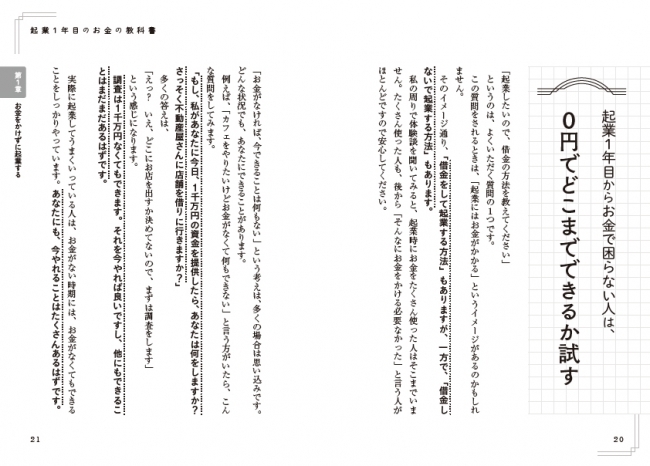 起業1年目のお金の教科書
起業1年目からお金で困らない人は、
0円でどこまでできるか試す
「起業したいので、借金の方法を教えてください」
というのは、よくいただく質問の1つです。
この質問をされるときは、「起業にはお金がかかる」というイメージがあるのかもしれ
ません。
そのイメージ通り、「借金をして起業する方法」もありますが、一方で、「借金し
ないで起業する方法」もあります。
私の周りで体験談を聞いてみると、起業時にお金をたくさん使った人はそこまでいま
せん。たくさん使った人も、後から「そんなにお金をかける必要なかった」と言う人が
ほとんどですので安心してください。
20
「お金がなければ、今できることは何もない」という考えは、多くの場合は思い込みです。
どんな状況でも、あなたにできることがあります。
例えば、「カフェをやりたいけどお金がなくて何もできない」と言う方がいたら、こん
な質問をしてみます。
「もし、私があなたに今日、1千万円の資金を提供したら、あなたは何をしますか?
さっそく不動産屋さんに店舗を借りに行きますか?」
多くの答えは、
「えっ? いえ、どこにお店を出すか決めてないので、まずは調査をします」
という感じになります。
調査は1千万円なくてもできます。それを今やれば良いですし、他にもできるこ
とはまだまだあるはずです。
実際に起業してうまくいっている人は、お金がない時期には、お金がなくてもできる
ことをしっかりやっています。あなたにも、今やれることはたくさんあるはずです。
第1章
お金をかけずに起業する
21